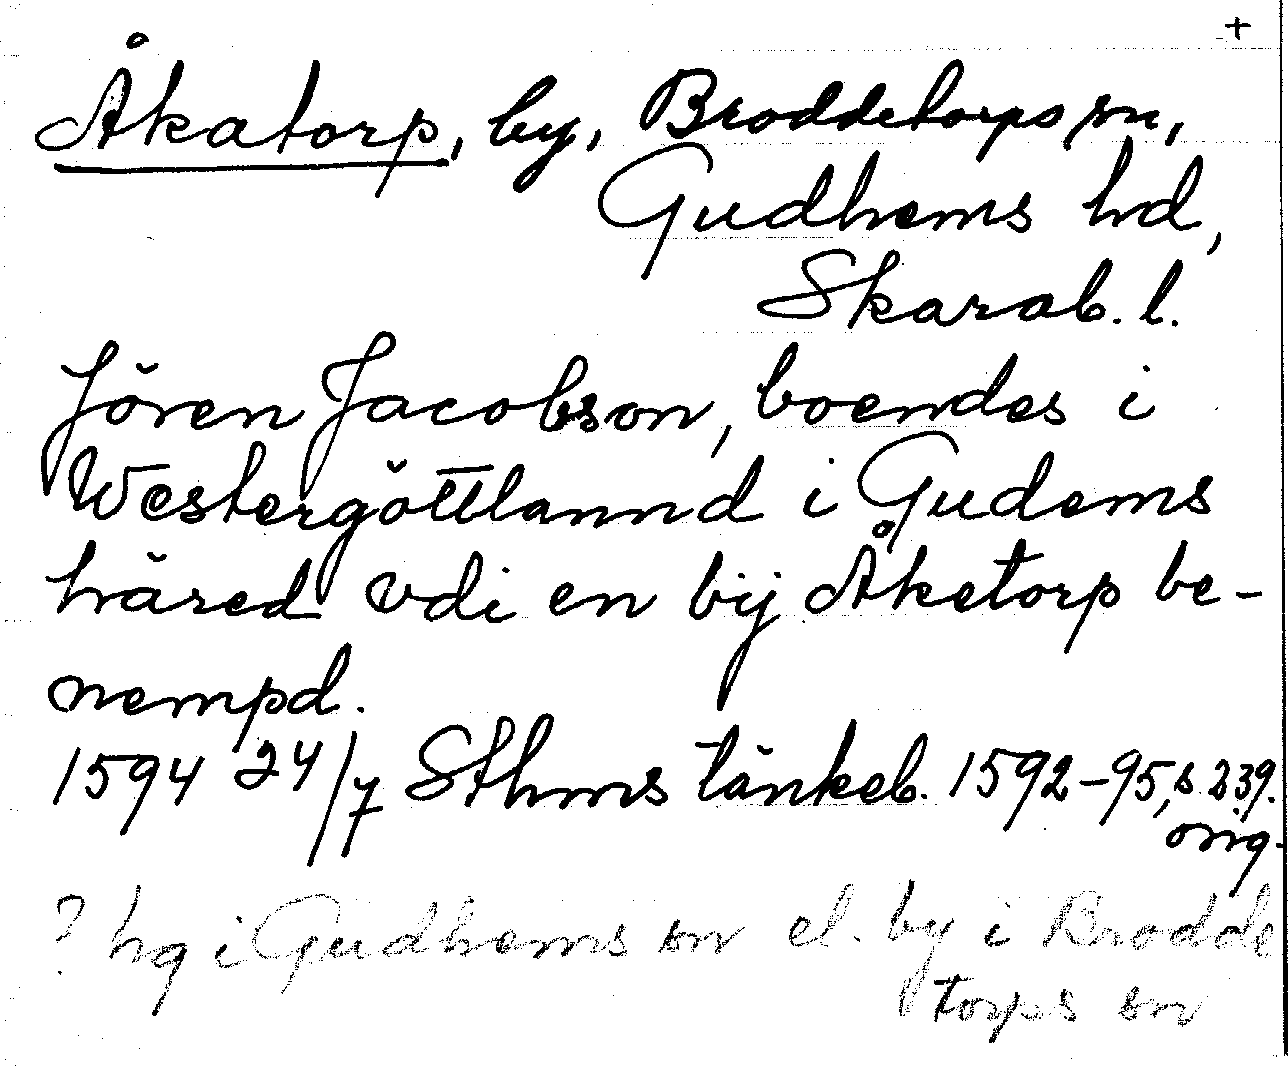 +
Åkatorp, by, Broddetorps sn,
Gudhems hd,
Skarab. l.
Jören Jacobson, boendes i
Westergöttlannd i Gudems
häred vdi en bij Åketorp be-
nempd.
1594 24/7 Sthms tänkeb. 1592-95, s 239.
orig.
? hg i Gudhems sn el. by i Brodde
torps sn